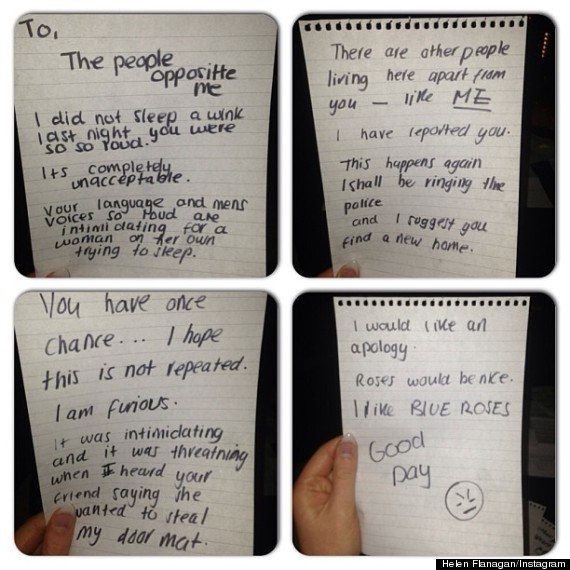 To,
The people
opposítte
me
I did not sleep a wink
last night you were
so so loud.
Its completely
unacceptable.
Your language and mens
voices so loud are
intimidating for a
woman on her own
trying to sleep.
There are other people
living here apart from
you – like ME
I have reported you.
This happens again
I shall be ringing the
police
and I suggest you
find a new home.
You have once
chance... I hope
this is not repeated.
I am furious.
It was intimidating
and it was threatning
when I heard your
friend saying she
wanted to steal
my door mat.
I would like an
apology.
Roses would be nice.
I like BLUE ROSES
Good
Day
Helen Flanagan/Instagram